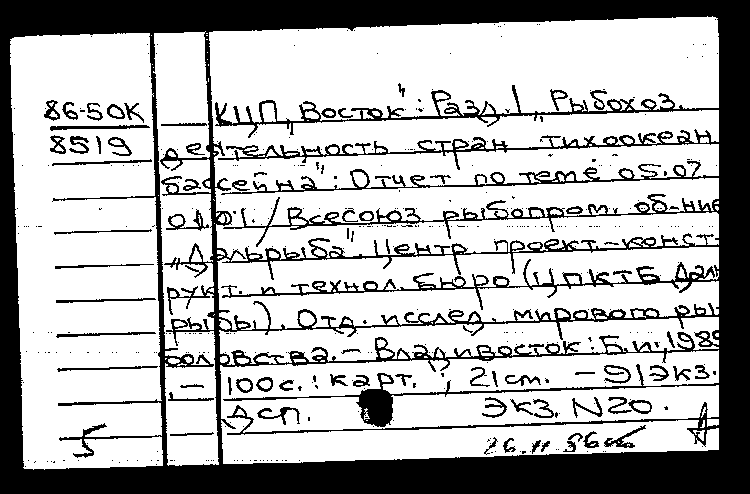 86-50К КЦП „Восток": Разд. 1 „Рыбохоз.
8519 деятельность стран тихоокеан.
бассейна": Отчет по теме 05.07.
01.01. / Всесоюз. рыбопром. об-ние
„Дальрыба". Центр. проект.-конст-
рукт. и технол. бюро (ЦПКТБ Даль
рыбы). Отд. исслед. мирового ры-
боловства. – Владивосток: Б.и., 198
. – 100 с.: карт.; 21 см. – 91 экз.
Дсп. Экз. N20.
5 26.11.86